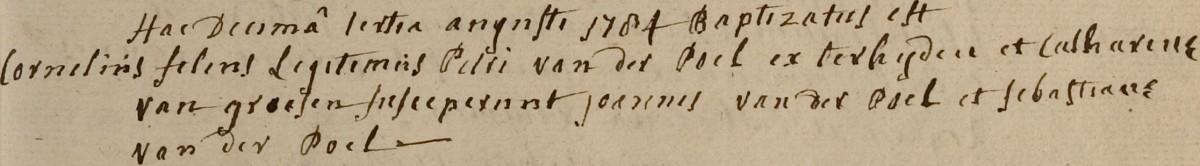 Hac Decimâ tertia augusti 1784 Baptizatus est
Cornelius filius Legitimus Petri van der Poel ex terheyden et Catharinæ
van groesen susceperunt joannes van der Poel et sebastianæ
van der Poel